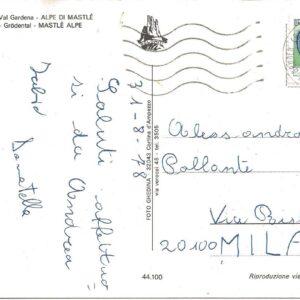 Val Gardena - ALPE DI MASTLÉ
- Grödental - MASTLÉ ALPE
31-8-78
Saluti affettuo=
si da Andrea
Fabio
Donatella
FOTO GHEDINA - 32043 Cortina d'Ampezzo
via verocai 43 - tel. 3505
Alessandra
Pollante
Via
20100 MILA
44.100
Riproduzione vie